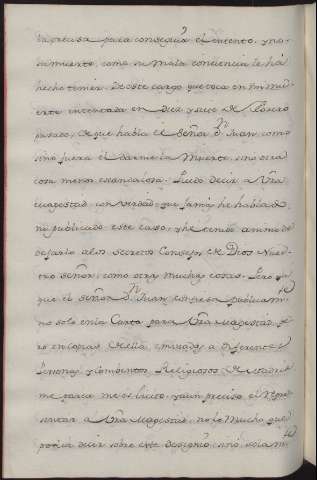 la precisa para conseguir el intento, y no
la muerte, como su mala conciencia le ha
hecho temer. De este cargo que toca en mi mu
erte intentada en diez y siete de febrero
pasado, de que habla el señor Dn Juan, como
sino fuera el darme la Muerte, sino otra
cosa menos escandalosa; Puedo decir a Vra
Magestad con verdad, que jamas he habla do
ni publicado este caso, y he tenido animo de
dejarlo a los secretos Consejos de Dios Nues
tro Señor, como otras muchas cosas. Pero ya
que el señor Dn Juan, expresa publicamte
no solo en la Carta para Vra Magestad, pe
ro en copias de ella, embiadas a diferentes
Personas, y Combentos Religiosos de Madrid
me parece me es licito, y aun preciso el Repre
sentar a Vra Magestad, no lo mucho que
podia decir sobre este designio, sinó solamte